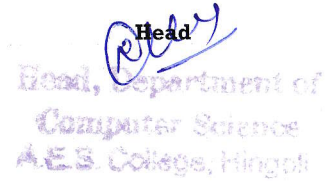 Head
Head, Department of
Computer Science
A.E.S. College, Hingoli